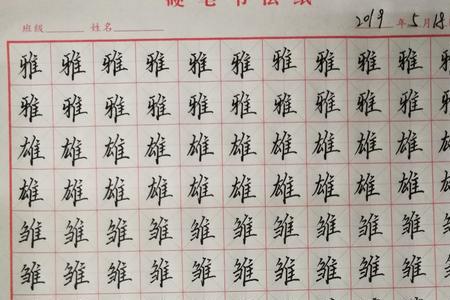 硬笔书法纸
班级 姓名 2019年5月18
雅雅雅雅雅雅雅雅雅雅
雅雅雅雅雅雅雅雅雅雅
雄雄雄雄雄雄雄雄雄雄
雄雄雄雄雄雄雄雄雄雄
雏雏雏雏雏雏雏雏雏雏
雏雏雏雏雏雏雏雏雏雏